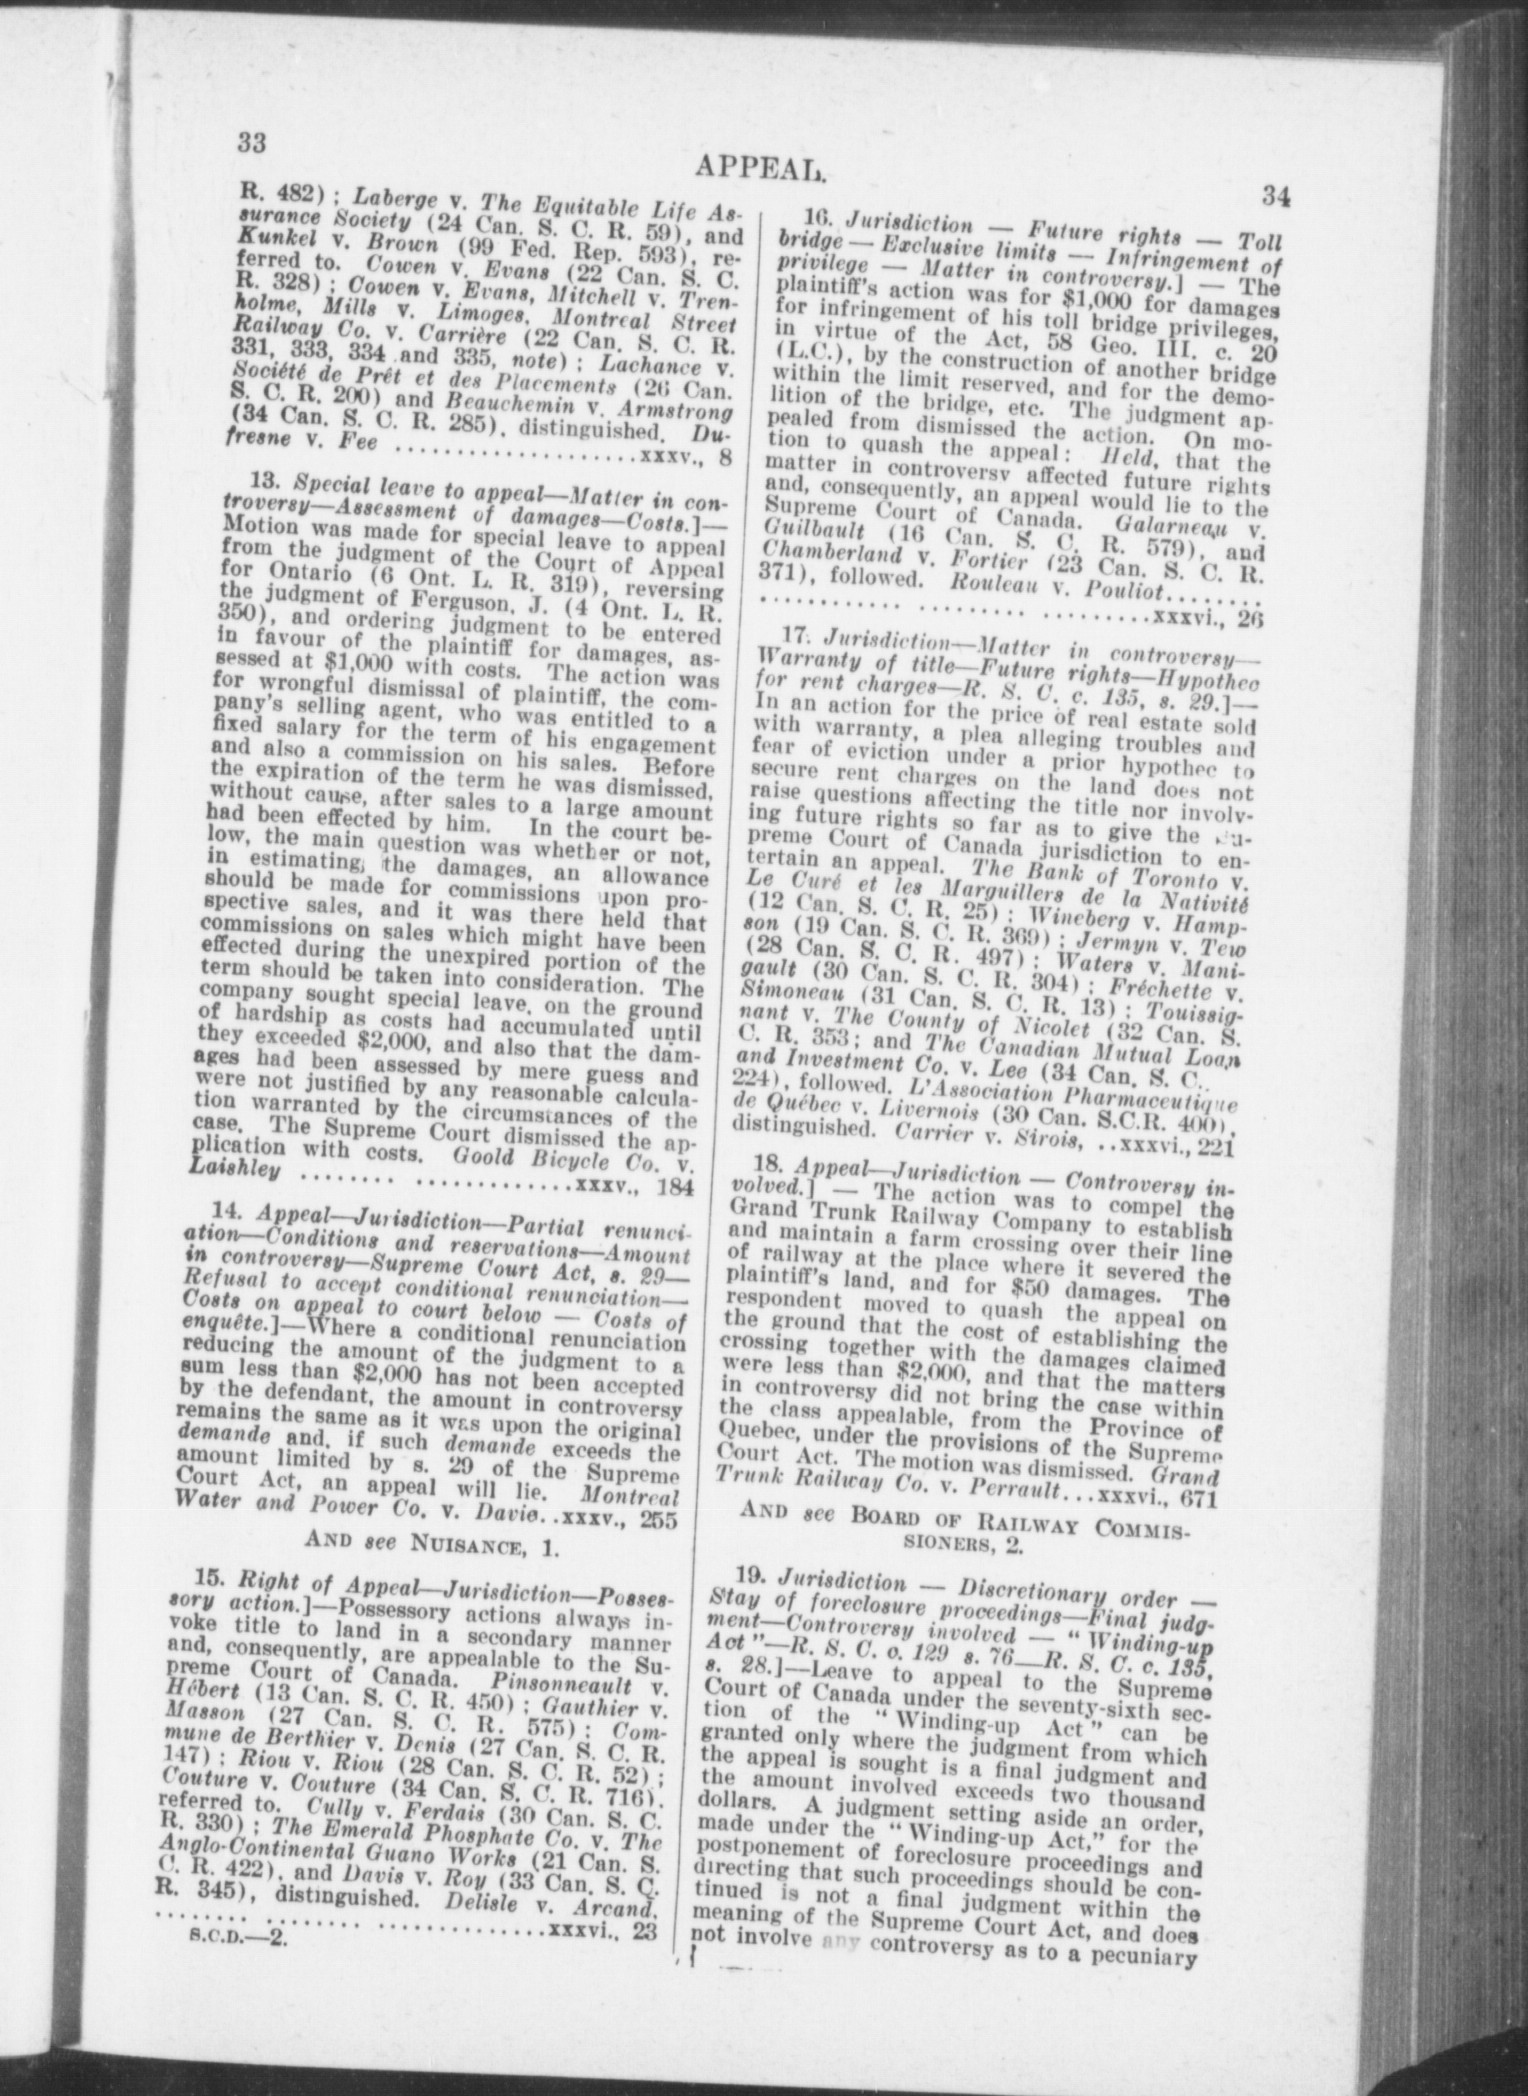 33
APPEAL.
34
R. 482) ; Laberge v. The Equitable Life As-
surance Society (24 Can. S. C. R. 59), and
Kunkel v. Brown (99 Fed. Rep. 593), re-
ferred to. Cowen v. Evans (22 Can. S. C.
R. 328) ; Cowen v. Evans, Mitchell v. Tren-
holme, Mills v. Limoges, Montreal Street
Railway Co. v. Carrière (22 Can. S. C. R.
331, 333, 334 and 335, note) ; Lachance v.
Société de Prêt et des Placements (26 Can.
S. C. R. 200) and Beauchemin v. Armstrong
(34 Can. S. C. R. 285), distinguished. Du-
fresne v. Fee .................... xxxv., 8
13. Special leave to appeal—Matter in con-
troversy—Assessment of damages—Costs.]—
Motion was made for special leave to appeal
from the judgment of the Court of Appeal
for Ontario (6 Ont. L. R. 319), reversing
the judgment of Ferguson, J. (4 Ont. L. R.
350), and ordering judgment to be entered
in favour of the plaintiff for damages, as-
sessed at $1,000 with costs. The action was
for wrongful dismissal of plaintiff, the com-
pany's selling agent, who was entitled to a
fixed salary for the term of his engagement
and also a commission on his sales. Before
the expiration of the term he was dismissed,
without cause, after sales to a large amount
had been effected by him. In the court be-
low, the main question was whether or not,
in estimating the damages, an allowance
should be made for commissions upon pro-
spective sales, and it was there held that
commissions on sales which might have been
effected during the unexpired portion of the
term should be taken into consideration. The
company sought special leave, on the ground
of hardship as costs had accumulated until
they exceeded $2,000, and also that the dam-
ages had been assessed by mere guess and
were not justified by any reasonable calcula-
tion warranted by the circumstances of the
case. The Supreme Court dismissed the ap-
plication with costs. Goold Bicycle Co. v.
Laishley ........ ............. xxxv., 184
14. Appeal—Jurisdiction—Partial renunci-
ation—Conditions and reservations—Amount
in controversy—Supreme Court Act, s. 29—
Refusal to accept conditional renunciation—
Costs on appeal to court below — Costs of
enquête.]—Where a conditional renunciation
reducing the amount of the judgment to a
sum less than $2,000 has not been accepted
by the defendant, the amount in controversy
remains the same as it was upon the original
demande and, if such demande exceeds the
amount limited by s. 29 of the Supreme
Court Act, an appeal will lie. Montreal
Water and Power Co. v. Davie..xxxv., 255
AND see NUISANCE, 1.
15. Right of Appeal—Jurisdiction—Posses-
sory action.]—Possessory actions always in-
voke title to land in a secondary manner
and, consequently, are appealable to the Su-
preme Court of Canada. Pinsonneault v.
Hébert (13 Can. S. C. R. 450) ; Gauthier v.
Masson (27 Can. S. C. R. 575) ; Com-
mune de Berthier v. Denis (27 Can. S. C. R.
147) ; Riou v. Riou (28 Can. S. C. R. 52) ;
Couture v. Couture (34 Can. S. C. R. 716),
referred to. Cully v. Ferdais (30 Can. S. C.
R. 330) ; The Emerald Phosphate Co. v. The
Anglo-Continental Guano Works (21 Can. S.
C. R. 422), and Davis v. Roy (33 Can. S. C.
R. 345), distinguished. Delisle v. Arcand.
........ ........ ..............xxxvi., 23
S.C.D.—2.
16. Jurisdiction — Future rights — Toll
bridge — Exclusive limits — Infringement of
privilege — Matter in controversy.] — The
plaintiff's action was for $1,000 for damages
for infringement of his toll bridge privileges,
in virtue of the Act, 58 Geo. III. c. 20
(L.C.), by the construction of another bridge
within the limit reserved, and for the demo-
lition of the bridge, etc. The judgment ap-
pealed from dismissed the action. On mo-
tion to quash the appeal: Held, that the
matter in controversy affected future rights
and, consequently, an appeal would lie to the
Supreme Court of Canada. Galarneau v.
Guilbault (16 Can. S. C. R. 579), and
Chamberland v. Fortier (23 Can. S. C. R.
371), followed. Rouleau v. Pouliot........
............ ......... .........xxxvi., 26
17. Jurisdiction—Matter in controversy—
Warranty of title—Future rights—Hypothec
for rent charges—R. S. C. c. 135, s. 29.]—
In an action for the price of real estate sold
with warranty, a plea alleging troubles and
fear of eviction under a prior hypothec to
secure rent charges on the land does not
raise questions affecting the title nor involv-
ing future rights so far as to give the Su-
preme Court of Canada jurisdiction to en-
tertain an appeal. The Bank of Toronto v.
Le Curé et les Marguillers de la Nativité
(12 Can. S. C. R. 25) ; Wineberg v. Hamp-
son (19 Can. S. C. R. 369) ; Jermyn v. Tew
(28 Can. S. C. R. 497) ; Waters v. Mani-
gault (30 Can. S. C. R. 304) ; Fréchette v.
Simoneau (31 Can. S. C. R. 13) ; Touissig-
nant v. The County of Nicolet (32 Can. S.
C. R. 353; and The Canadian Mutual Loan
and Investment Co. v. Lee (34 Can. S. C.
224), followed. L'Association Pharmaceutique
de Québec v. Livernois (30 Can. S.C.R. 400),
distinguished. Carrier v. Sirois, ..xxxvi., 221
18. Appeal—Jurisdiction — Controversy in-
volved.] — The action was to compel the
Grand Trunk Railway Company to establish
and maintain a farm crossing over their line
of railway at the place where it severed the
plaintiff's land, and for $50 damages. The
respondent moved to quash the appeal on
the ground that the cost of establishing the
crossing together with the damages claimed
were less than $2,000, and that the matters
in controversy did not bring the case within
the class appealable, from the Province of
Quebec, under the provisions of the Supreme
Court Act. The motion was dismissed. Grand
Trunk Railway Co. v. Perrault...xxxvi., 671
AND see BOARD OF RAILWAY COMMIS-
SIONERS, 2.
19. Jurisdiction — Discretionary order —
Stay of foreclosure proceedings—Final judg-
ment—Controversy involved — " Winding-up
Act "—R. S. C. c. 129 s. 76—R. S. C. c. 135,
s. 28.]—Leave to appeal to the Supreme
Court of Canada under the seventy-sixth sec-
tion of the " Winding-up Act " can be
granted only where the judgment from which
the appeal is sought is a final judgment and
the amount involved exceeds two thousand
dollars. A judgment setting aside an order,
made under the " Winding-up Act," for the
postponement of foreclosure proceedings and
directing that such proceedings should be con-
tinued is not a final judgment within the
meaning of the Supreme Court Act, and does
not involve any controversy as to a pecuniary